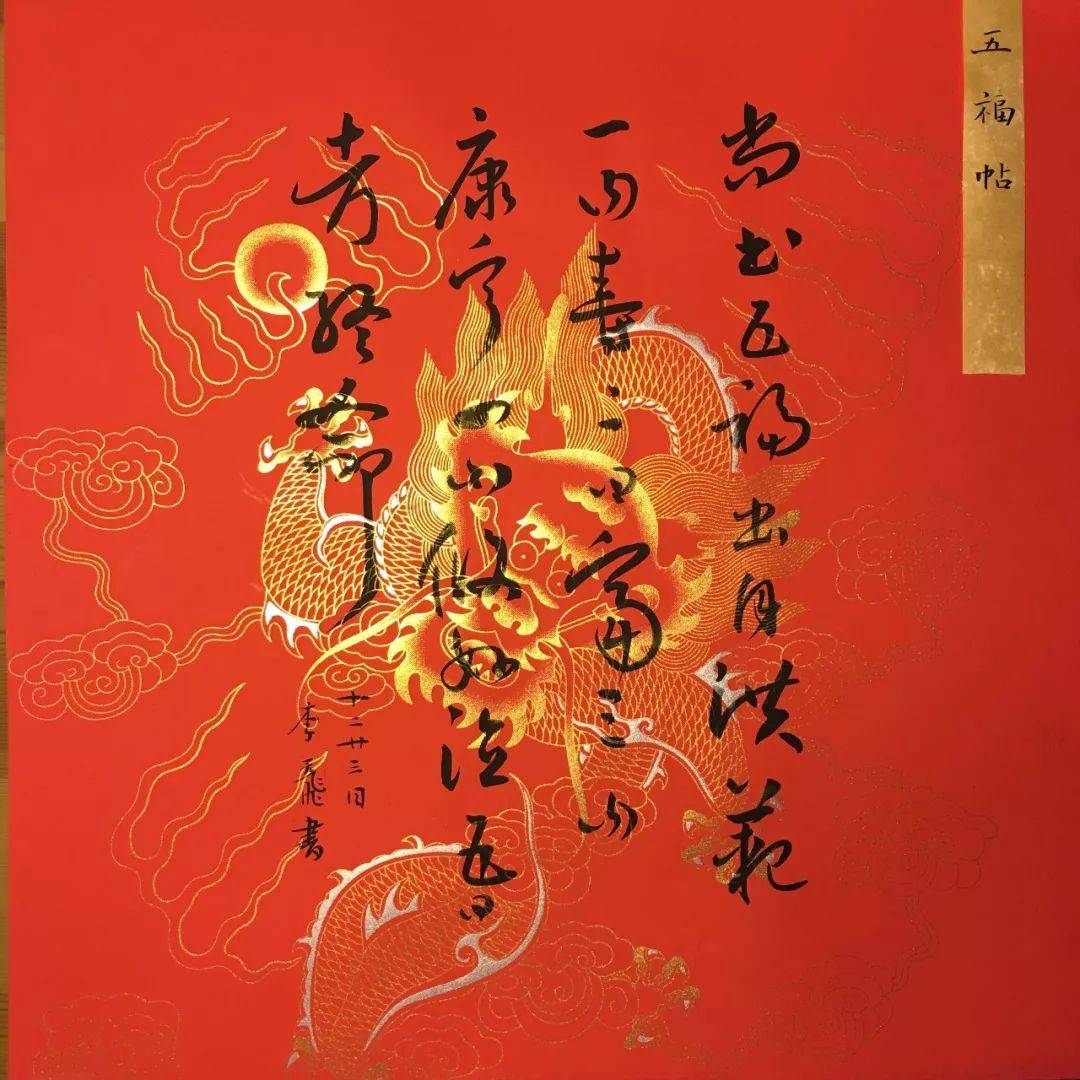 五福帖
尚书五福出自洪範
一曰壽二曰富三曰
康宁四曰攸好德五曰
考終命
十二廿三日
李飛書